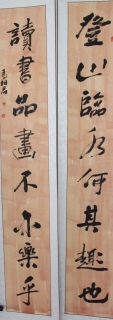 登山臨水何其趣也
讀書品畫不亦樂乎